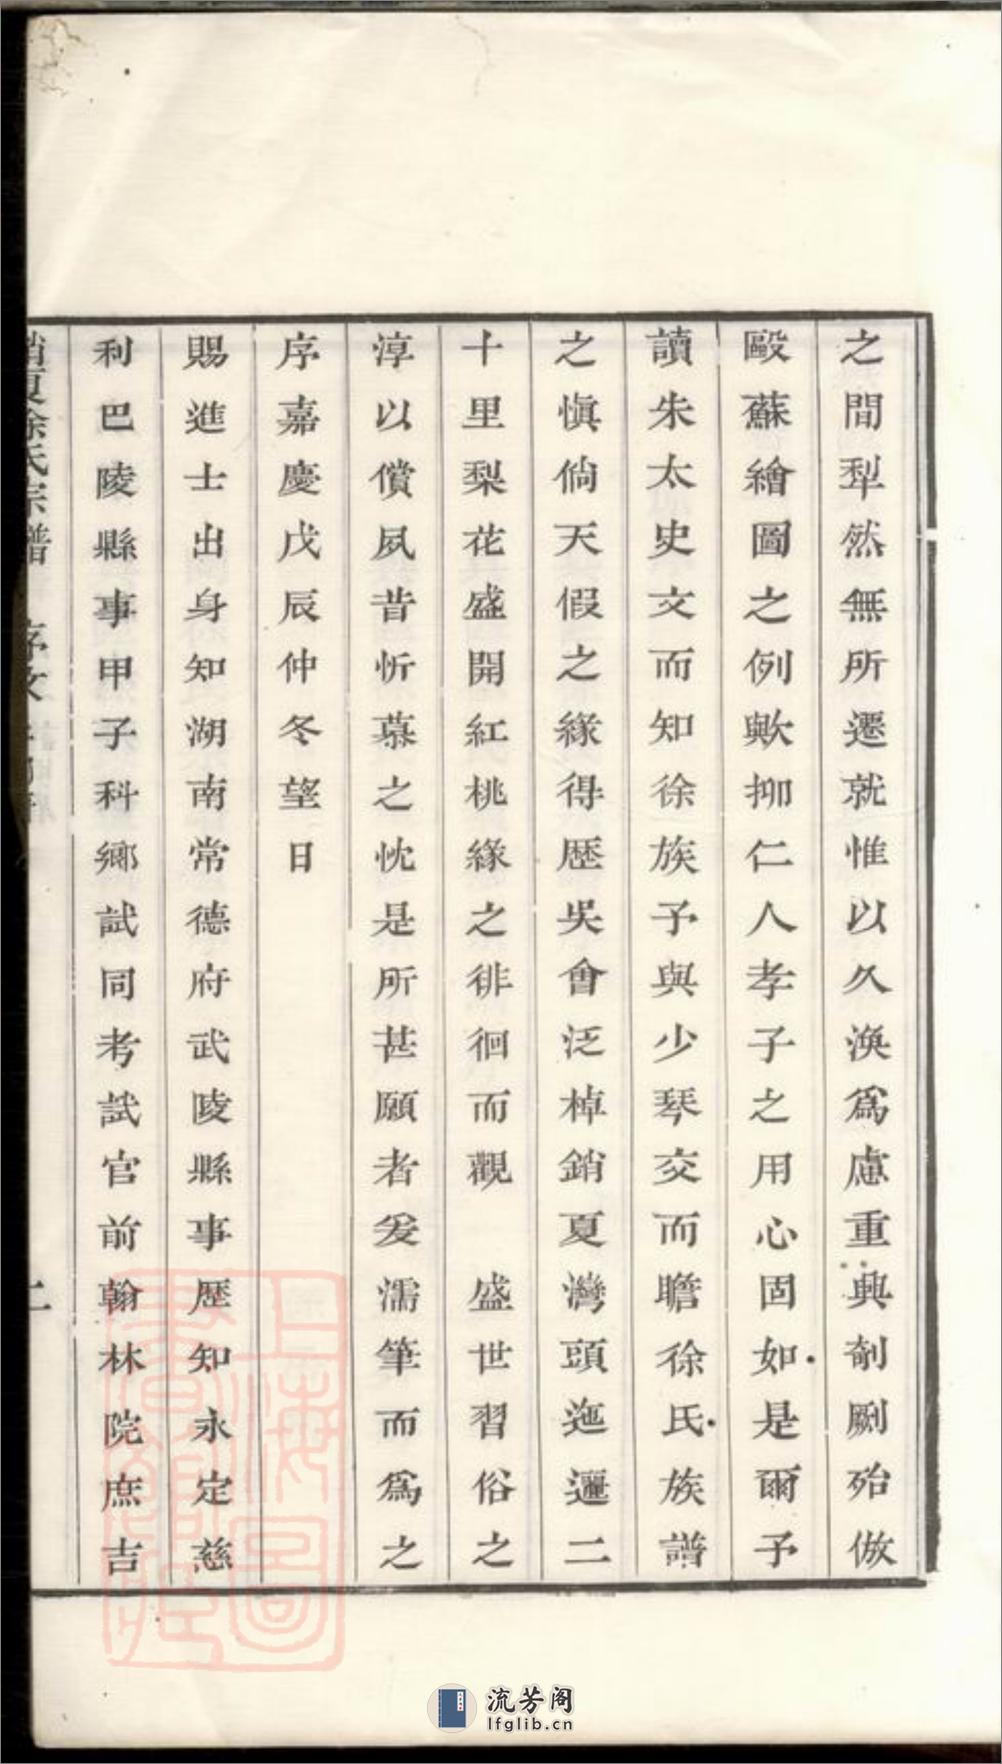 之間犁然無所遷就惟以久渙爲慮重興剞劂殆倣
毆蘇繪圖之例歟抑仁人孝子之用心固如是爾予
讀朱太史文而知徐族予與少琴交而瞻徐氏族譜
之愼倘天假之緣得歷吳會泛棹銷夏灣頭迤邐二
十里梨花盛開紅桃緣之徘徊而觀　盛世習俗之
淳以償夙昔忻慕之忱是所甚願者爰濡筆而爲之
序嘉慶戊辰仲冬望日
賜進士出身知湖南常德府武陵縣事歷知永定慈
利巴陵縣事甲子科鄉試同考試官前翰林院庶吉
銷夏徐氏宗譜　序文　二
上海圖書館藏
流芳阁
lfglib.cn